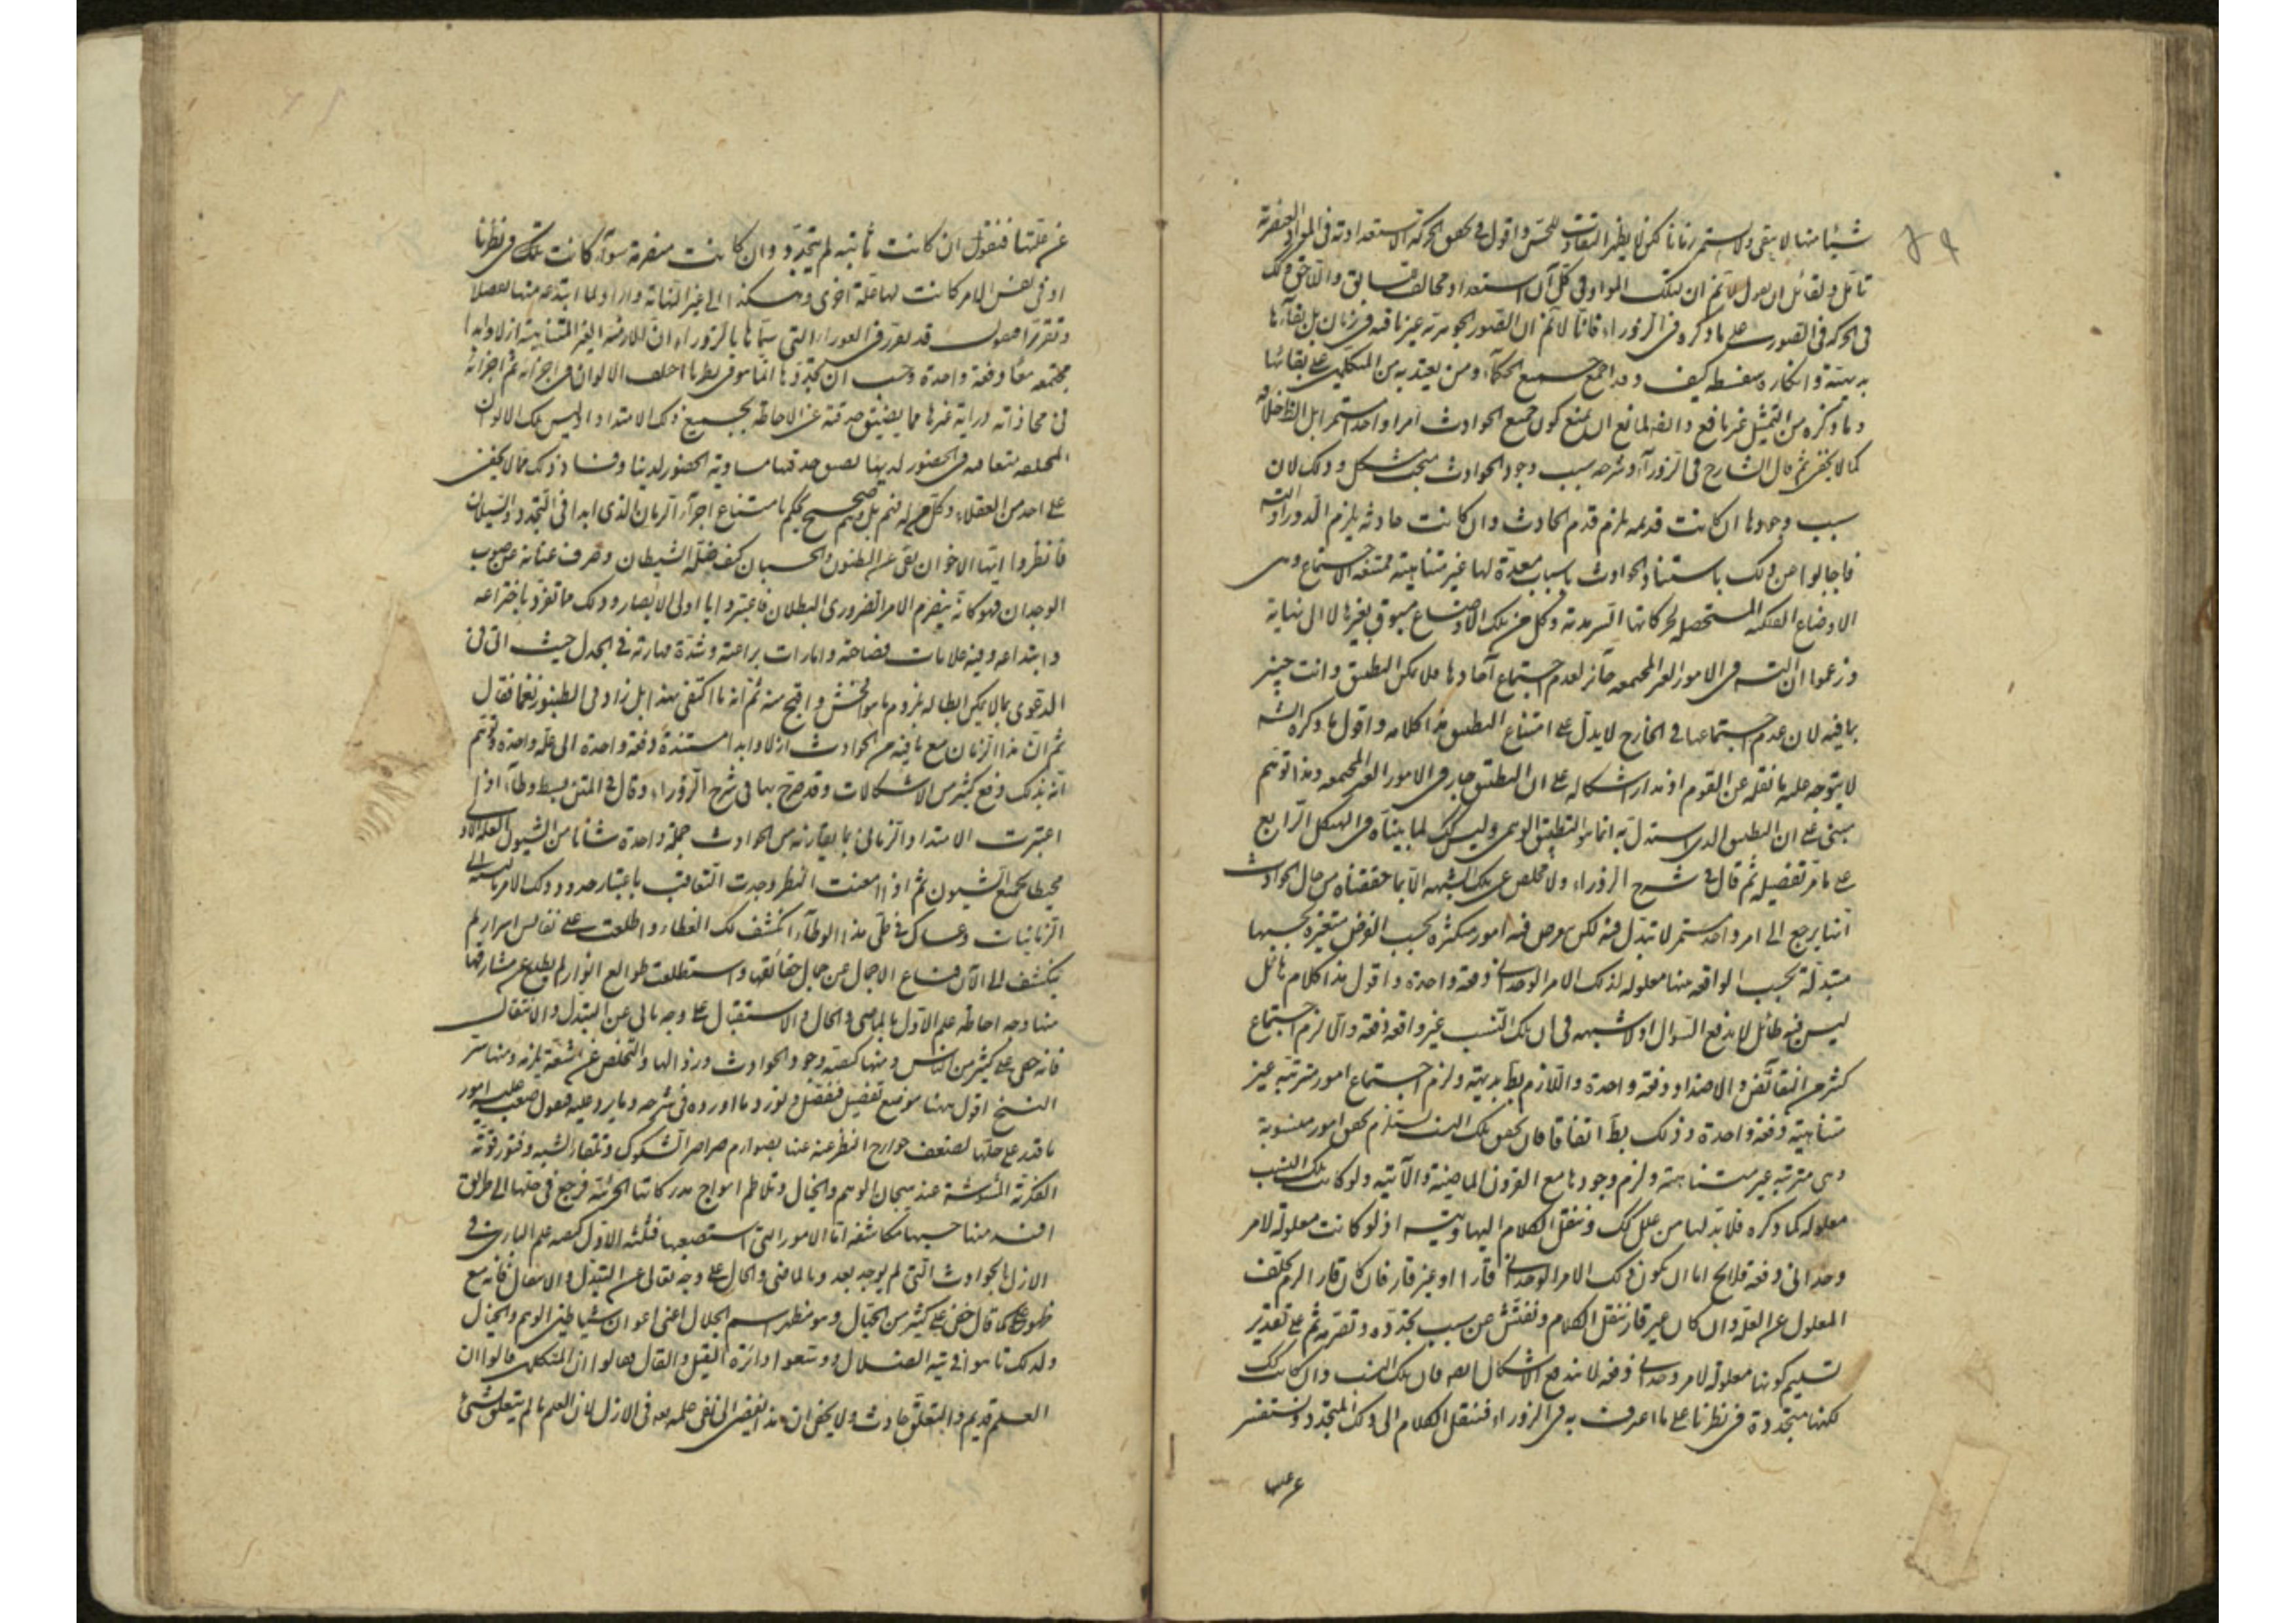 شيئا منها لا يبقى ولا يستمر زمانا لكن لا يظهر التفاوت للحس واقول في تحقق الحركة الاستعدادية في المواد العنصرية
تأمل ولقائل ان يقول لا نم ان لتلك المواد في كل آن استعداد مخالف لسابق واللاحق وكذا
في الحركة في الصور على ما ذكره في الزوراء فانا لا نم ان الصور الجوهرية غير باقية في زمان بل بقاؤها
بديهية وانكاره سفسطة كيف وقد اجمع جميع الحكماء ومن يعتد به من المتكلمين على بقائها
وما ذكره من التمثيل غير نافع وايضا لمانع ان يمنع كون جميع الحوادث امرا واحدا مستمرا
كما لا يخفى ثم قال الشارح في الزوراء وشرحه سبب وجود الحوادث مشكل وذلك لان
سبب وجودها ان كانت قديمه يلزم قدم الحادث وان كانت حادثه يلزم الدور او التس
فاجابوا عن ذلك باستناد الحوادث باسباب معدة لها غير متناهية ممتنعة الاجتماع وهى
الاوضاع الفلكية المستحصلة لحركاتها السرمدية وكل من تلك الاوضاع مسبوق بغيرها لا الى نهاية
وزعموا ان التس في الامور الغير المجتمعه جائز لعدم اجتماع آحادها فلا يمكن التطبيق وانت خبير
بما فيه لان عدم اجتماعها في الخارج لا يدل على امتناع التطبيق هذا كلامه واقول ما ذكره
لا يتوجه عليه ما نقله عن القوم اذ مدار اشكاله على ان التطبيق جار في الامور الغير المجتمعه وهذا توهم
مبنى على ان التطبيق الذى استدل به انما هو التطبيق الوهمى وليس كك لما بيناه في الشكل الرابع
على ما مر تفصيله ثم قال في شرح الزوراء ولا مخلص عن تلك الشبهه الا بما حققناه من حال الحوادث
انها يرجع الى امر واحد مستمر لا تبدل فيه لكن يعرض فيه امور متكثره بحسب الفرض متغيره بحسبها
متبدلة بحسب الواقعه منها معلوله لذلك الامر الوحدانى دفعة واحدة واقول هذا كلام هائل
ليس فيه طائل لا يدفع السؤال اذ لا شبهه في ان تلك النسب غير واقعة دفعة والا لزم اجتماع
كثير من النقائض والاضداد دفعة واحدة واللازم بط بديهية ولزم اجتماع امور مترتبة غير
متناهية دفعة واحدة وذلك بط اتفاقا فان تحقق تلك النسب يستلزم تحقق امور منسوبة
وهى مترتبه غير متناهية ولزم وجودها مع القرون الماضية والآتية ولو كانت تلك النسب
معلولة كما ذكره فلا بد لها من علل كك وننقل الكلام اليها ويتس اذ لو كانت معلولة لامر
وحدانى دفعة فلا يخ اما ان يكون ذلك الامر الوحدانى قارا او غير قار فان كان قارا لزم تخلف
المعلول عن العلة وان كان غير قار ننقل الكلام ونفتش عن سبب تجدده وتصرمه ثم على تقدير
تسليم كونها معلولة لامر وحدانى دفعة لا يندفع الاشكال ايضا فان تلك النسب وان كانت كك
لكنها متجددة في نظرنا على ما اعترفت به في الزوراء فننقل الكلام الى ذلك المتجدد ونستفسر
عن علتها
عن علتها فنقول ان كانت ثابتة لم يتجدد وان كانت متصرمة سواء كانت تلك في نظرنا
او في نفس الامر كانت لها علة اخرى وهكذا الى غير النهاية وان اراد لما ابتدعه منها تفصيلا
وتقريرا فنقول قد تقرر في التى سماها بالزوراء ان للازمنه الغير المتناهية ازلا وابدا
مجتمعه معا دفعة واحدة وحسب ان تجددها انما هو في نظرنا اختلف الالوان في اجزائه ثم اجزائه
في محاذاته ذرا‌ية غيرها مما يضيق حدقته عن الاحاطة بجميع ذلك الامتداد اذ ليس تلك الالوان
المختلفة متعاقبة في الحضور لديها لضيق حدقتها متساوية الحضور لدينا وفساد ذلك مما لا يخفى
على احد من العقلاء وكل من له فهم بل وهم صحيح يحكم بامتناع اجزاء الزمان الذى ابدا في التجدد والسيلان
فانظروا ايها الاخوان بقى عن الظنون والحسبان كيف ضله الشيطان وصرف عنانه عن صوب
الوجدان فهو كانه يتصرم الامر الضرورى البطلان فاعتبروا يا اولى الابصار وذلك ما تفرد باختراعه
وابتداعه وفيه علامات فضاحته وامارات براعته وشدة مهارته في الجدل حيث اتى في
الدعوى بما لا يمكن ابطاله بلزوم ما هو افحش واقبح منه ثم انه ما اكتفى بهذا بل زاد في الطنبور نغما فقال
ثم ان هذا الزمان مع ما فيه من الحوادث ازلا وابدا مستندة دفعة واحدة الى علة واحدة وتوهم
انه بذلك دفع كثير من الاشكالات وقد صرح بها في شرح الزوراء وقال في المتن بسط وطاء اذا
اعتبرت الامتداد الزمانى بما يقارنه من الحوادث جملة واحدة شانا من الشيون العلة الاولى
محيطا بجميع الشيون ثم اذا امعنت النظر وجدت التعاقب باعتبار حدود ذلك الامر بالنسبة الى
الزمانيات وعساك في طى هذا الوطاء انكشف لك الغطاء واطلعت على نفائس اسرار لم
ينكشف الى الآن قناع الاجمال عن جمال حقائقها واستطلعت طوالع انوار لم يطلع عن مشارقها
منها وجه احاطة علم الاول بالماضى والحال والاستقبال على وجه تعالى عن التبدل والانتقال
فانه خفى على كثير من الناس ومنها كيفية وجود الحوادث وزوالها والتخلص عن شنعة يلزمه ومنها سر
النسخ اقول ههنا موضع تفصيل فنفصل ونورد ما اورده في شرحه وما يرد عليه فنقول صعب عليه امور
ما قدر على حلها لضعف جوارح النظر عنه عنها بصوارم صراصر الشكوك ومنقار الشبه وفتور قوته
الفكرية المشوشة عند هيجان الوهم والخيال وتلاطم امواج مدركاتها الجزئية فرجع في حلها الى طريق
افسد منها حسبها مكاشفة اما الامور التى استصعبها فثلثه الاول كيفية علم البارى في
الازل بالحوادث التى لم يوجد بعد وبالماضى والحال على وجه تعالى عن التبدل والانتقال فانه مع
ظهوره كما قال خفى على كثير من الجبال وهو مظهر اسم الجلال اعنى اعوان شياطين الوهم والخيال
ولذلك تاهوا في تيه الضلال ووسعوا دائرة القيل والقال فقالوا ان المتكلمين قالوا ان
العلم قديم والمتعلق حادث ولا يخفى ان هذا يفضى الى نفى علمه تعه في الازل لان العلم ما لم يتعلق بشئ